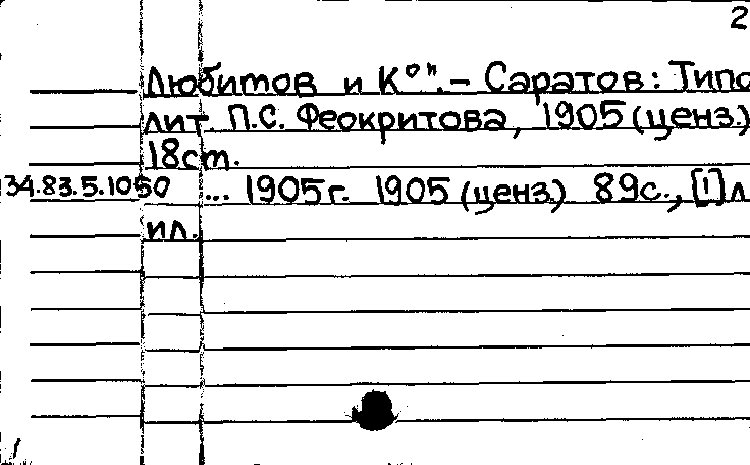 2
Любитов и К°".– Саратов: Типо
лит. П.С. Феокритова, 1905 (ценз.)
18см.
34.83.5.1050 ... 1905г. 1905 (ценз.) 89с., [1] л
ил.